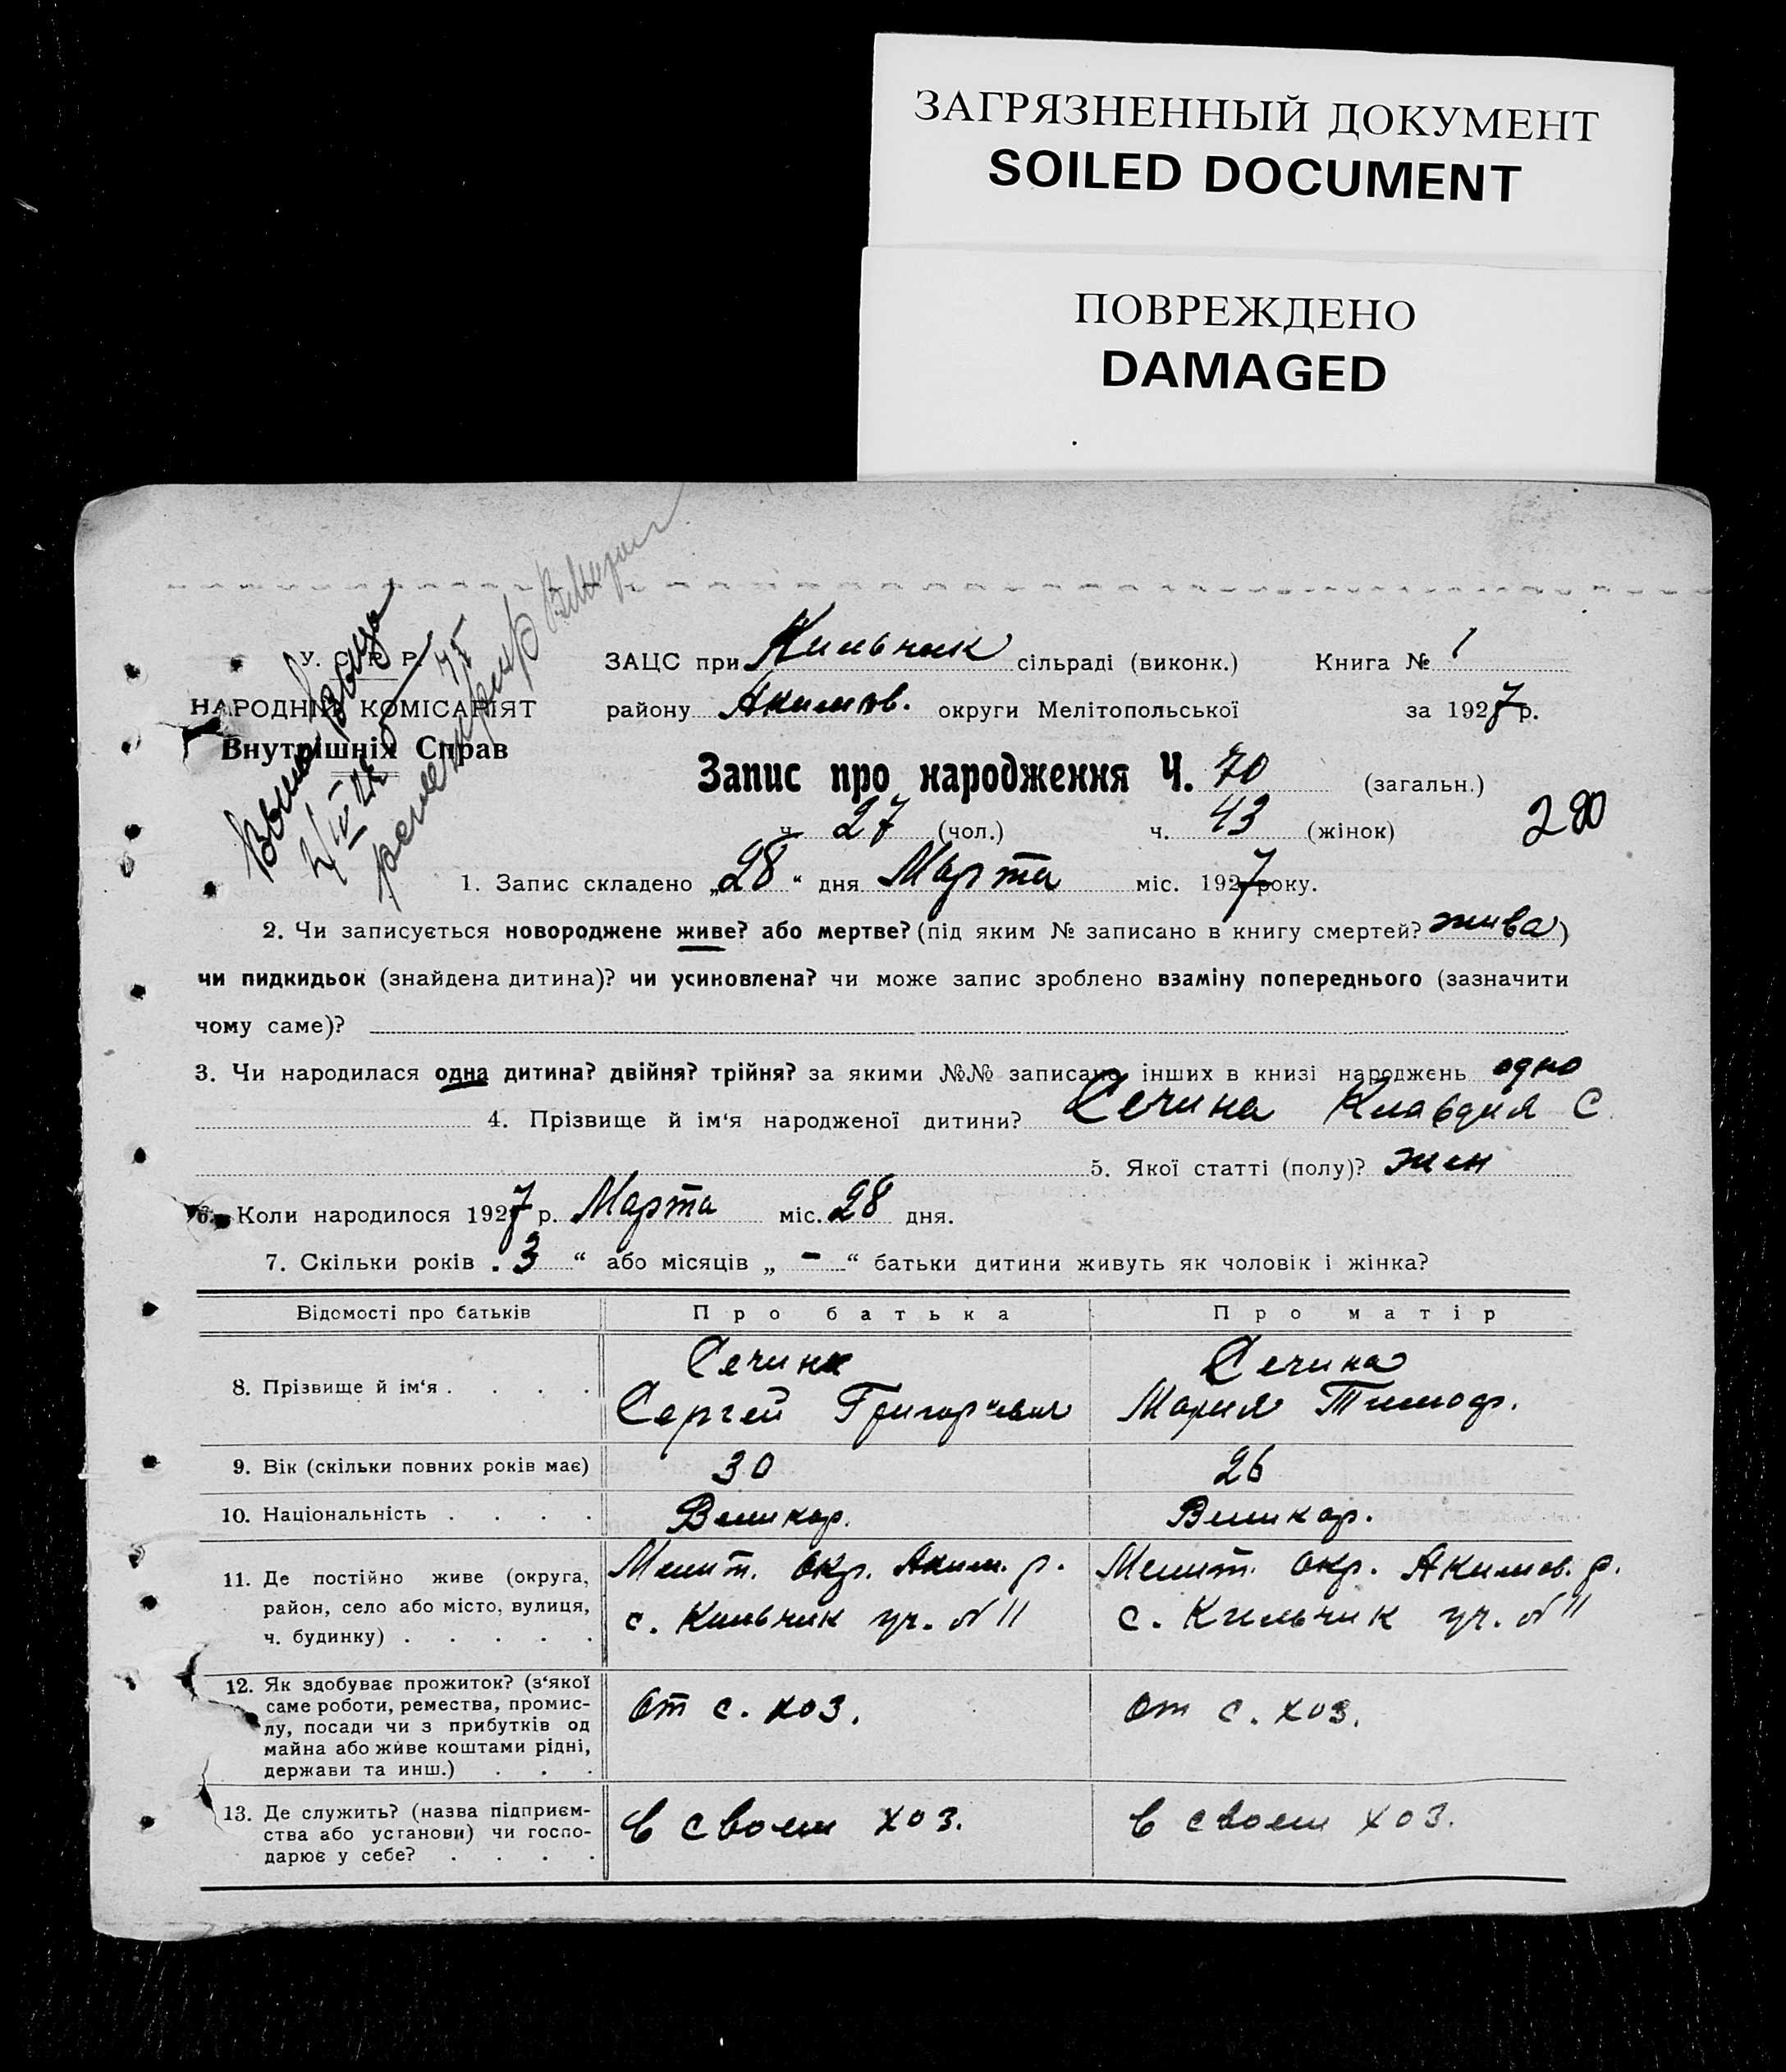 ЗАГРЯЗНЕННЫЙ ДОКУМЕНТ
SOILED DOCUMENT
ПОВРЕЖДЕНО
DAMAGED
У. С. Р. Р.
НАРОДНІЙ КОМІСАРІЯТ
Внутрішніх Справ
ЗАЦС при Кильчик сільраді (виконк.) Книга № 1
району Акимов. округи Мелітопольської за 1927 р.
Запис про народження Ч. 70 (загальн.)
ч. 27 (чол.) ч. 43 (жінок) 280
1. Запис складено „28“ дня Марта міс. 1927 року.
2. Чи записується новороджене живе? або мертве? (під яким № записано в книгу смертей? жива)
чи пидкидьок (знайдена дитина)? чи усиновлена? чи може запис зроблено взаміну попереднього (зазначити
чому саме)?
3. Чи народилася одна дитина? двійня? трійня? за якими №№ записано інших в книзі народжень одно
4. Прізвище й ім‘я народженої дитини? Сечина Клавдия С
5. Якої статті (полу)? жен
6. Коли народилося 1927 р. Марта міс. 28 дня.
7. Скільки років „ 3 “ або місяців „ – “ батьки дитини живуть як чоловік і жінка?
Відомості про батьків Про батька Про матір
8. Прізвище й ім‘я . . . . Сечин Сечина
Сергей Григорьевич Мария Тимоф.
9. Вік (скільки повних років має) 30 26
10. Національність . . . . Великор. Великор.
11. Де постійно живе (округа, Мелит. окр. Аким. р. Мелит. окр. Акимов. р.
район, село або місто, вулиця, с. Кильчик уч. №11 с. Кильчик уч. №11
ч. будинку) . . . . .
12. Як здобуває прожиток? (з‘якої
саме роботи, ремества, промис- от с. хоз. от с. хоз.
лу, посади чи з прибутків од
майна або живе коштами рідні,
держави та инш.) . . .
13. Де служить? (назва підприєм- в своем хоз. в своем хоз.
ства або установи) чи госпо-
дарює у себе? . . . .